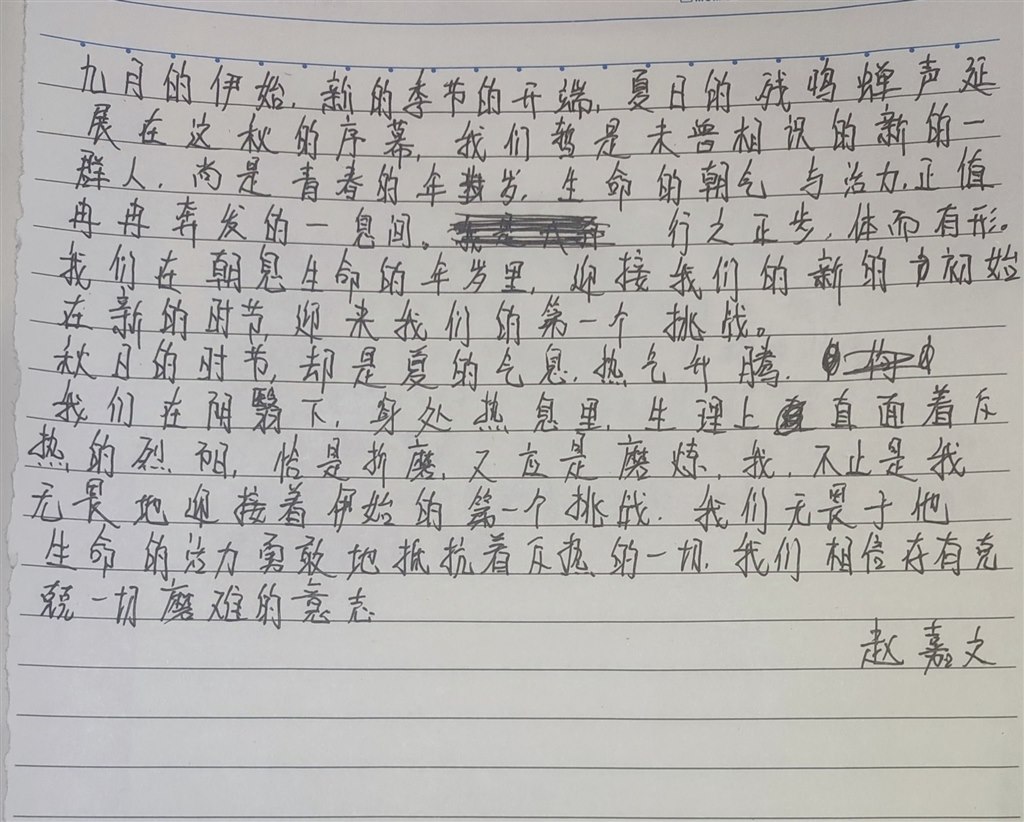 九月的伊始，新的季节的开端，夏日的残鸣蝉声延
展在这秋的序幕，我们暂是未曾相识的新的一
群人，尚是青春的年岁，生命的朝气与活力，正值
冉冉奔发的一息间。行之正步，体而有形。
我们在朝息生命的年岁里，迎接我们的新的初始
在新的时节，迎来我们的第一个挑战。
秋月的时节，却是夏的气息，热气升腾，
我们在阴翳下，身处热息里，生理上直面着灰
热的烈阳，恰是折磨，又应是磨炼，我，不止是我
无畏地迎接着伊始的第一个挑战，我们无畏于他
生命的活力勇敢地抵抗着灰热的一切，我们相信存有克
兢一切磨难的意志
赵嘉文